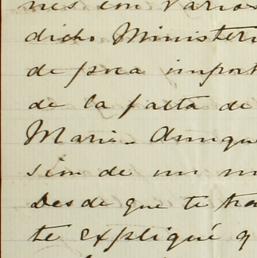 nes con varios
dicho Ministeri
de poca import
de la falta de
Maria. Aunque
sion de un m
Desde que te tra
te expliqué q